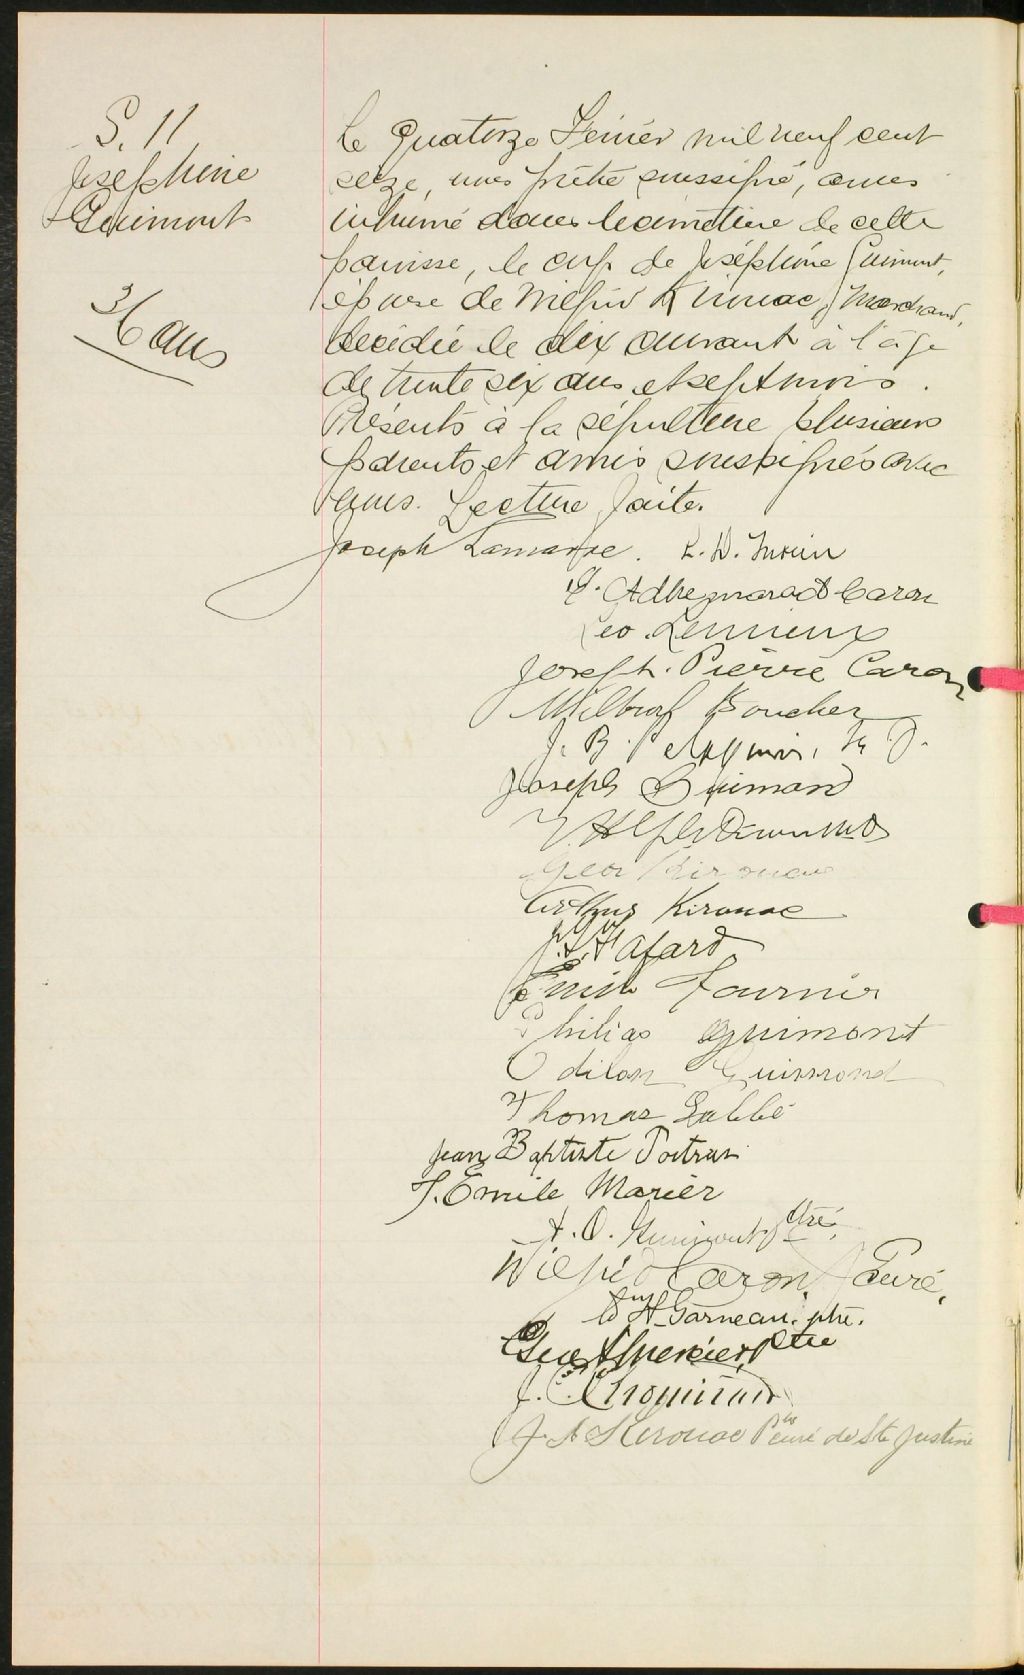 S. 11
Joséphine
Guimont
36 ans
Le quatorze Février mil neuf cent
seize, nous prêtre soussigné, avons
inhumé dans le cimetière de cette
paroisse, le corps de Joséphine Guimont,
épouse de Wilfrid Kirouac, marchand,
décédée le dix courant à l'âge
de trente six ans et sept mois.
Présents à la sépulture plusieurs
parents et amis soussignés avec
nous. Lecture faite.
Joseph Lamarre. L. D. Morin
Adhemarad Caron
Leo. Lemieux
Joseph. Pierre Caron
Boucher
J. B. M. D.
Joseph Guimond
Geo Kirouac
Arthur Kirouac
Hafard
Emile Fournier
Philias Guimont
Odilon Guimond
Thomas Labbé
Jean Baptiste Poitras
J. Emile Marier
A. O. Guimont, ptre,
Wilfrid Caron, Curé,
H. Garneau, ptre.
Mercier, Ptre
J. C. Chouinard
J. A. Kirouac Ptre curé de Ste Justine